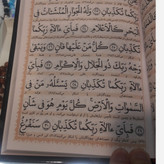 رَبِّكُمَا تُكَذِّبَانِ ۝ وَلَهُ الْجَوَارِ الْمُنْشَآتُ فِي
الْبَحْرِ كَالْأَعْلَامِ ۝ فَبِأَيِّ آلَاءِ رَبِّكُمَا
تُكَذِّبَانِ ۝ كُلُّ مَنْ عَلَيْهَا فَانٍ ۝ وَيَبْقَىٰ
وَجْهُ رَبِّكَ ذُو الْجَلَالِ وَالْإِكْرَامِ ۝ فَبِأَيِّ آلَاءِ
رَبِّكُمَا تُكَذِّبَانِ ۝ يَسْأَلُهُ مَنْ فِي
السَّمَاوَاتِ وَالْأَرْضِ كُلَّ يَوْمٍ هُوَ فِي شَأْنٍ
۝ فَبِأَيِّ آلَاءِ رَبِّكُمَا تُكَذِّبَانِ ۝ سَنَفْرُغُ